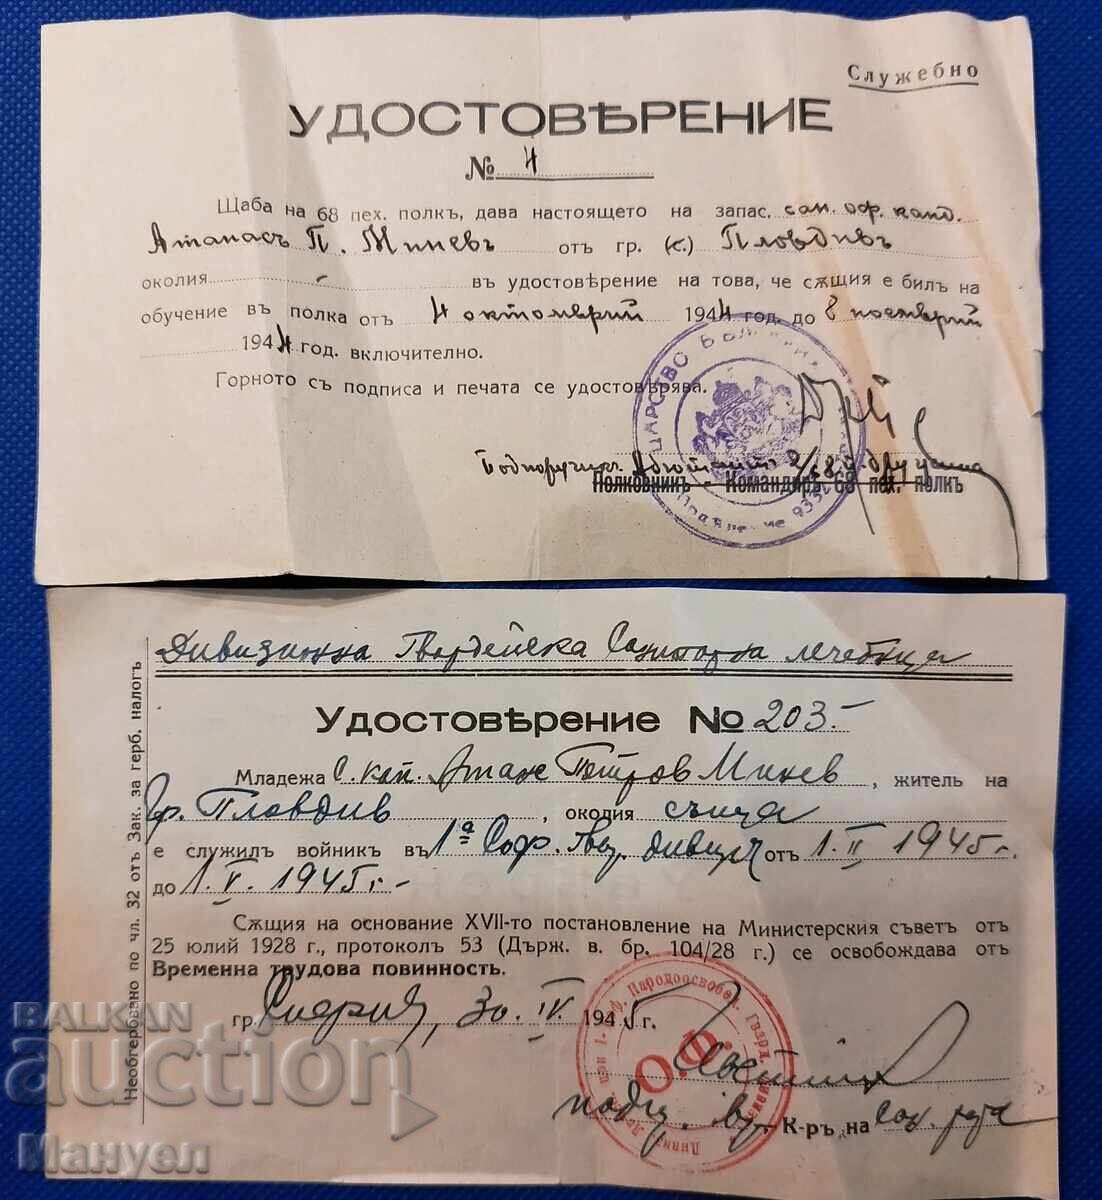 Служебно
УДОСТОВѢРЕНИЕ
№ 4
Щаба на 68 пех. полкъ, дава настоящето на запас. сан. оф. канд.
Атанасъ П. Миневъ отъ гр. (с.) Пловдивъ
околия - въ удостовѣрение на това, че сѫщия е билъ на
обучение въ полка отъ 4 октомврий 1944 год. до 8 ноемврий
1944 год. включително.
Горното съ подписа и печата се удостовѣрява.
ЦАРСТВО БЪЛГАРИЯ
Подѣление
Подпоручикъ, Адютантъ 2/68 п. дружина
Полковникъ - Командиръ 68 пех. полкъ
Необгербвано по чл. 32 отъ Зак. за герб. налогъ
Дивизионна Гвардейска Санитарна лечебница
Удостовѣрение № 203.-
Младежа С. кап. Атанас Петров Минев, житель на
гр. Пловдив, околия същата
е служилъ войникъ въ 1а Соф. Гвар. дивизия отъ 1.II 1945 г.
до 1.V. 1945 г.-
Сѫщия на основание XVII-то постановление на Министерския съветъ отъ
25 юлий 1928 г., протоколъ 53 (Държ. в. бр. 104/28 г.) се освобождава отъ
Временна трудова повинность.
гр. , 30.IV 1945 г.
О.Ф.
К-ръ на Сан. рота
BALKAN
auction
Мануел